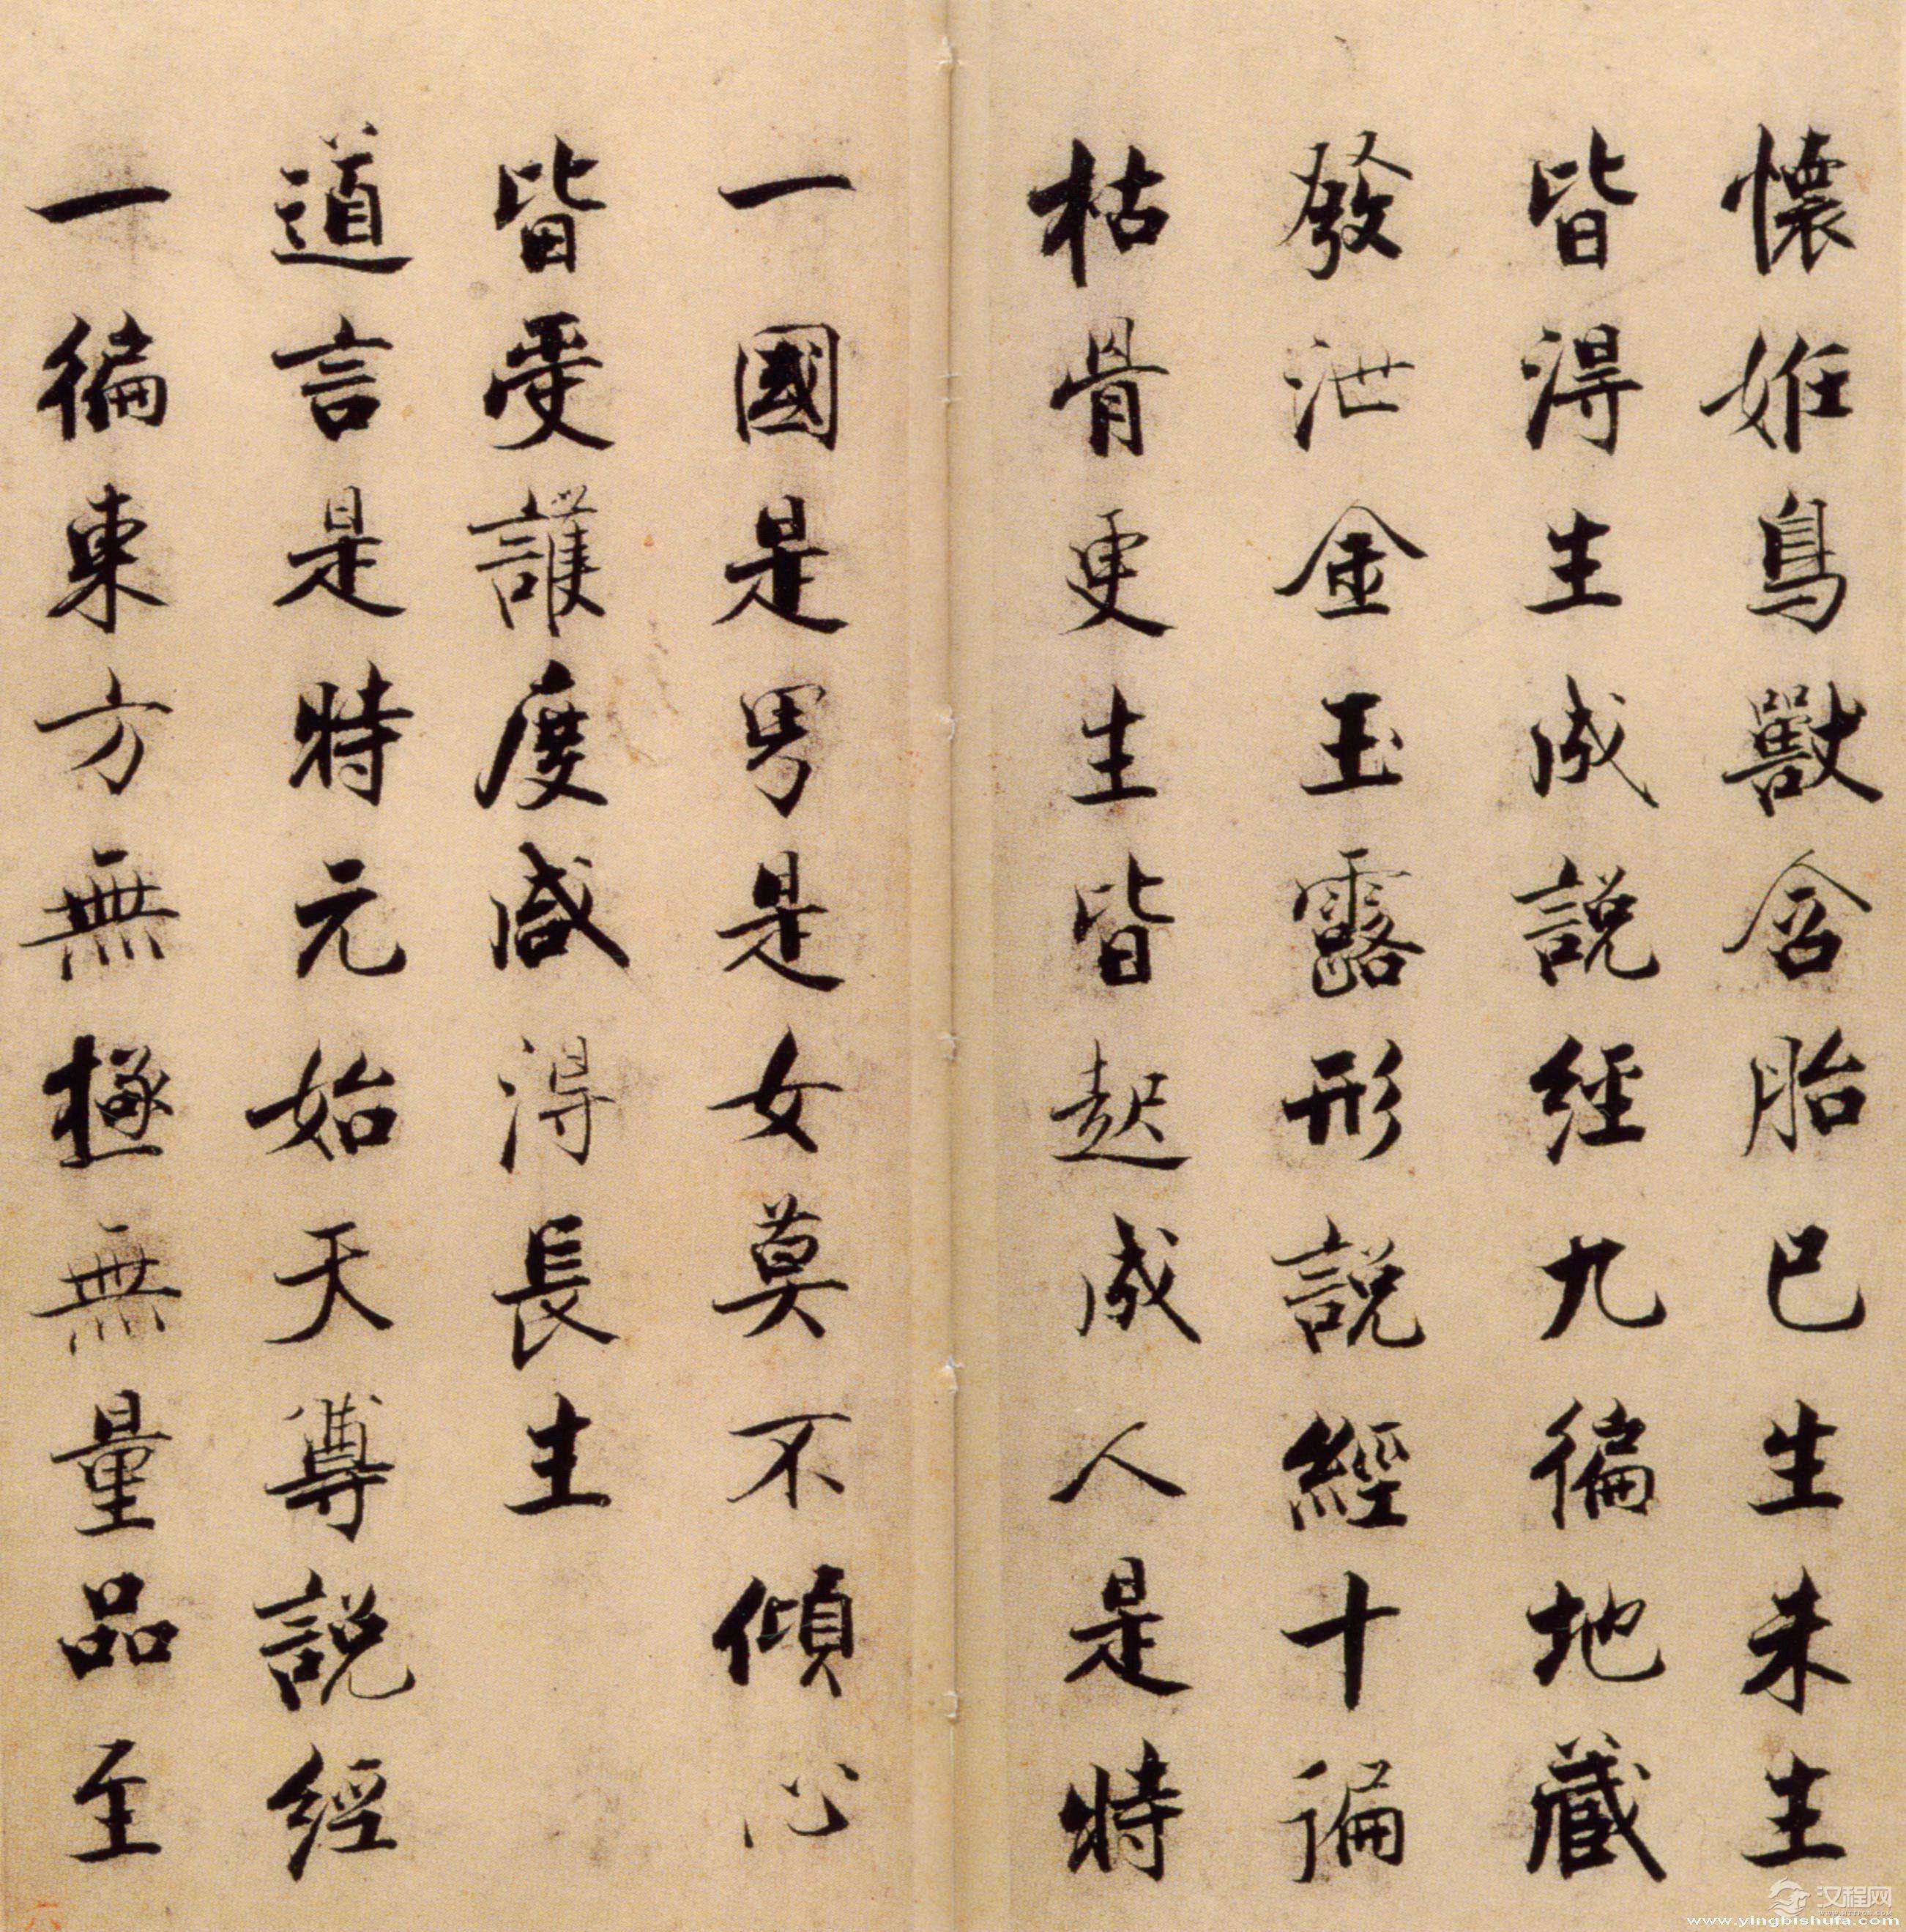 懷姙鳥獸含胎已生未生
皆淂生成說經九徧地藏
發泄金玉露形說經十遍
枯骨更生皆起成人是時
一國是男是女莫不傾心
皆受護度咸淂長生
道言是時元始天尊說經
一徧東方無極無量品至
汉程网
www.yingbishufa.com